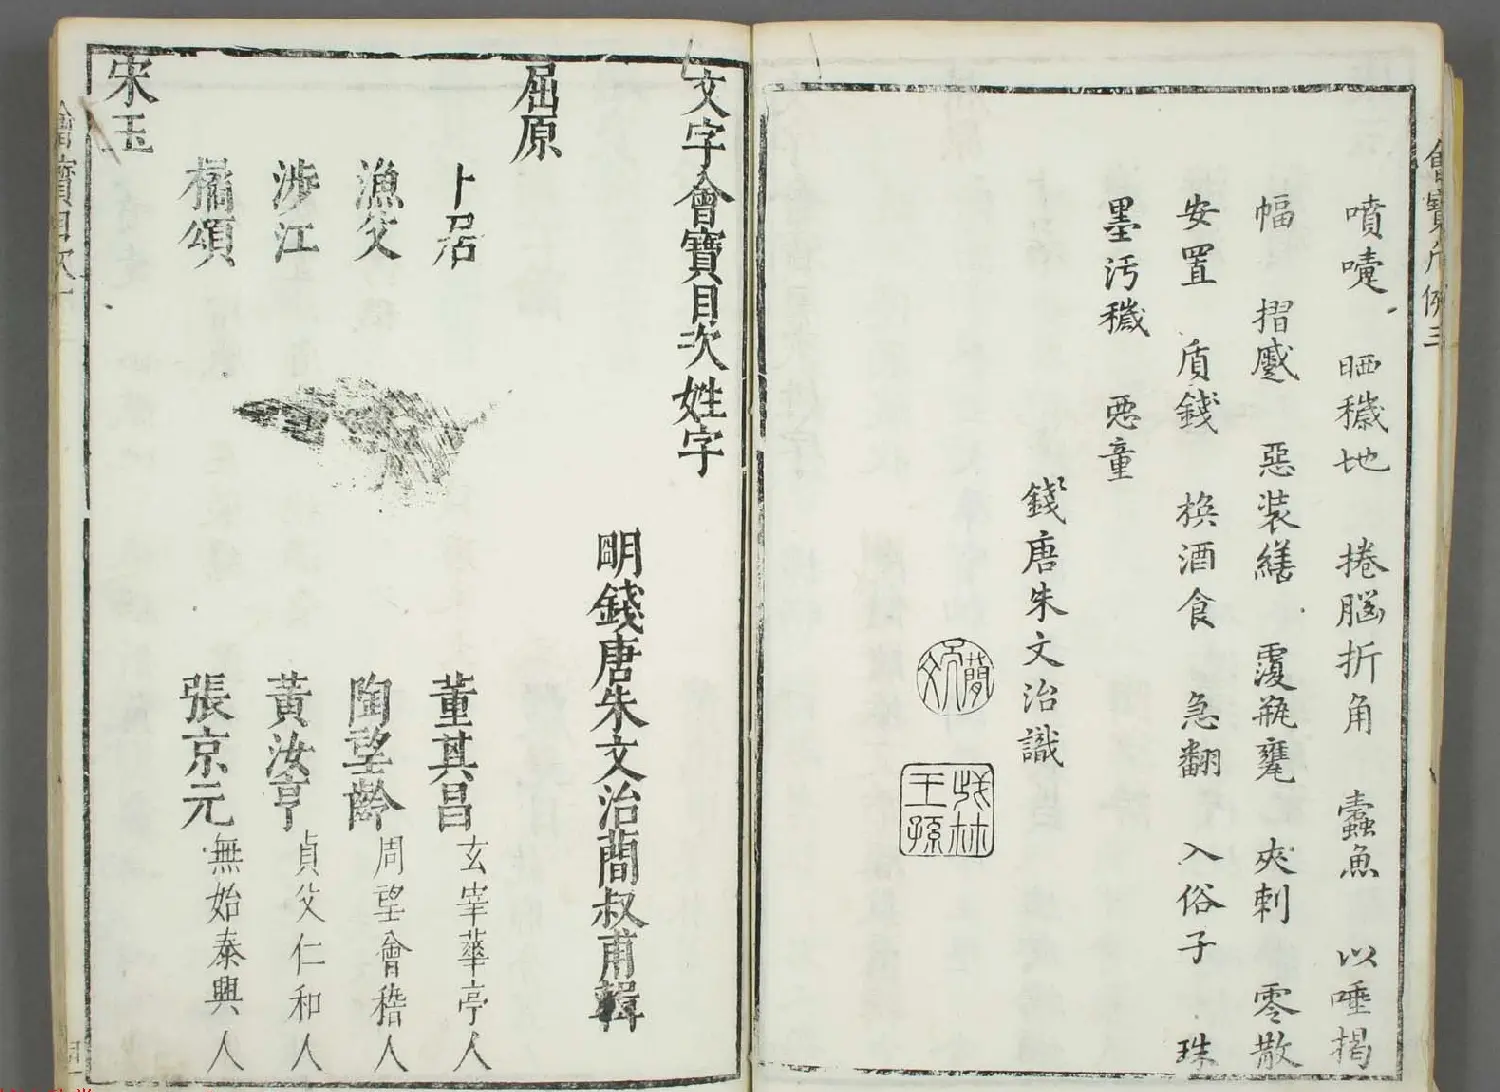 噴嚏 晒穢地 捲腦折角 蠹魚 以唾揭
幅 摺蹙 惡装繕 覆瓶甕 夾刺 零散
安置 质錢 换酒食 急翻 入俗子 珠
墨汚穢 恶童
錢唐朱文治識
簡
王孫
文字會寶目次姓字
明錢唐朱文治蕳叔甫輯
屈原
卜居 董其昌 玄宰華亭人
漁父 陶望齡 周望會稽人
涉江 黃汝亨 貞父仁和人
橘頌 張京元 無始泰興人
宋玉